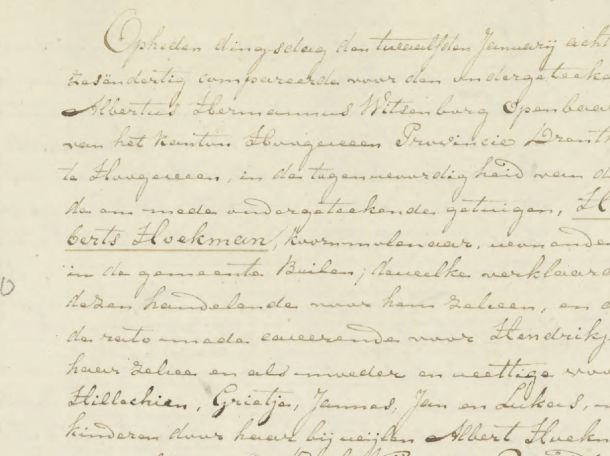 Opheden dingsdag den twaalfden Januarij acht
zesendertig compareerde voor den ondergeteeke
Albertus Hermannus Witsenborg Openbaar
van het kanton Hoogeveen Provincie Drenth
te Hoogeveen, in de tegenwoordigheid van d
de en mede ondergeteekende getuigen, H
berts Hoekman, koornmolenaar, wonende
in de gemeente Beilen; dewelke verklaard
dezen handelende voor hem zelven, en
de rato mede caveerende voor Hendrikj
haar zelve en als moeder en wettige voo
Hillechien, Grietje, Jannes, Jan en Lukas,
kinderen door haar bij wijlen Albert Hoekm